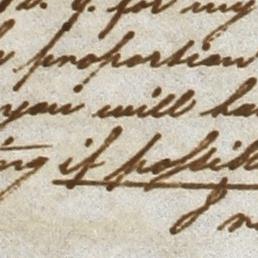 for my
proportion
you will ha
ing if possib
I